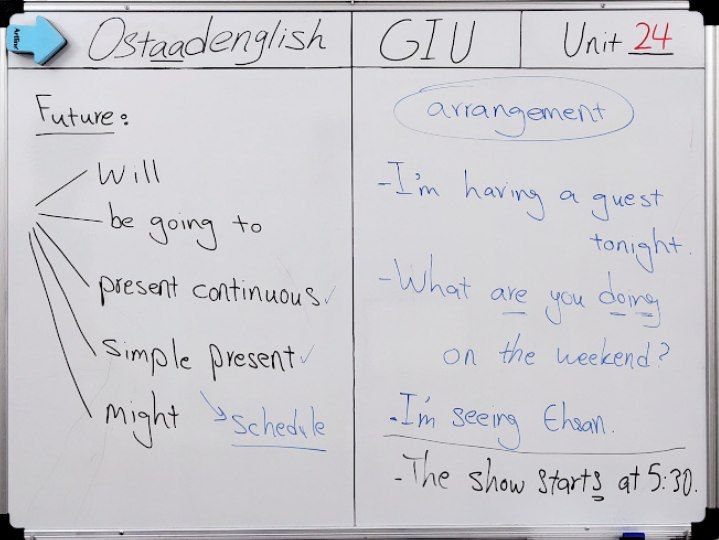 Ostaadenglish
GIU
Unit 24
Future:
Will
be going to
present continuous
simple present
might
schedule
arrangement
-I'm having a guest
tonight.
-What are you doing
on the weekend?
-I'm seeing Ehsan.
-The show starts at 5:30.